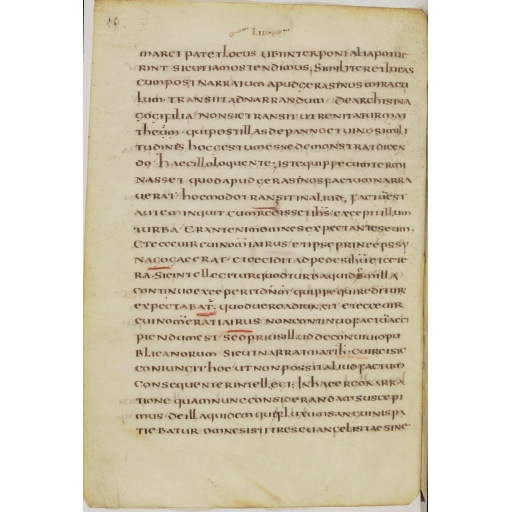 LII
MARCI PATET LOCUS UBI INTERPONI ALIA POTUE
RINT SICUT IAM OSTENDIMUS, SIMILITER ET LUCAS
CUM POST NARRATUM APUD GERASINOS MIRACU
LUM TRANSIIT AD NARRANDUM DE ARCHISINA
GOGI FILIA NON SIC TRANSIIT UT RENITATUR MAT
THEŪM QUI POST ILLAS DE PANNO ET UINO SIMILI
TUDINES HOC GESTUM ESSE DEMONSTRAT DICEN
DO HAEC ILLO LOQUENTE; ISTE QUIPPE CUM TERMI
NASSET QUOD APUD GERASINOS FACTUM NARRA
UERAT HOC MODO TRANSIIT IN ALIUD, FACTŪ EST
AUTEM INQUIT CUM REDISSET IHS EXCEPIT ILLUM
TURBA ERANT ENIM OMNES EXPECTANTES EUM,
ET ECCE UIR CUI NOMĒ IAIRUS ET IPSE PRINCEPS SY
NAGOGAE ERAT ET CECIDIT AD PEDES IHŪ ET CETE
RA. SIC INTELLEGITUR QUOD TURBA QUIDĒ ILLA
CONTINUO EXCEPERIT DNM QUIPPE QUI REDITUR
EXPECTABAT. QUOD UERO ADIUNXIT ET ECCE UIR
CUI NOMĒ ERAT IAIRUS NON CONTINUO FACTŪ ACCI
PIENDUM EST SED PRIUS ILLUD DE CONUIUIO PU
BLICANORUM SICUT NARRAT MATTH: CUI ... SIC
CONIUNGIT HOC UT NON POSSIT ALIUD FACTUM
CONSEQUENTER INTELLEGI; IN HAC ERGO NARRA
TIONE QUAM NUNC CONSIDERANDAM SUSCEPI
MUS DE ILLA QUIDEM QUAE FLUXUM SANGUINIS PA
TIEBATUR OMNES ISTI TRES EUANGELISTAE SINE